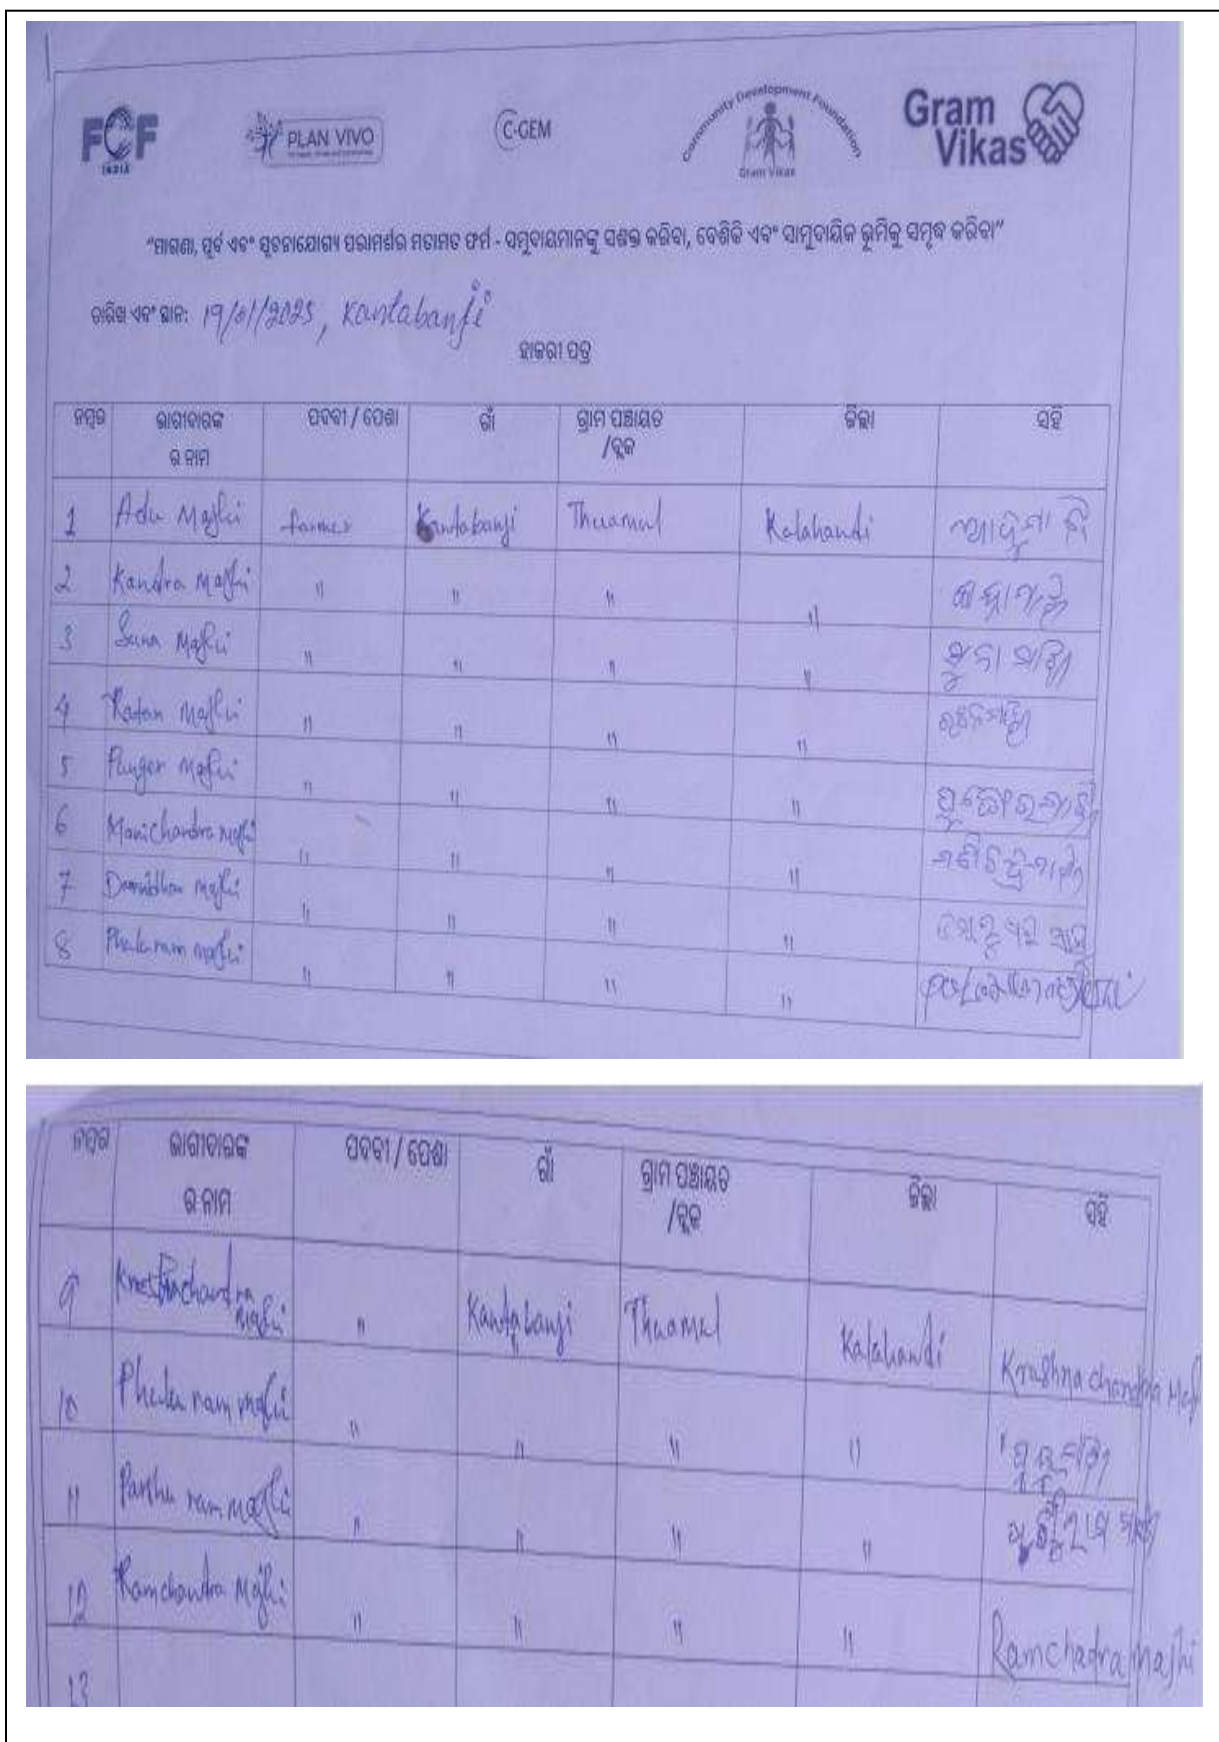 FCF
INDIA
PLAN VIVO
C-GEM
Community Development Foundation
Gram Vikas
Gram
Vikas
“ମାଗଣା, ପୂର୍ବ ଏବଂ ସୂଚନାଯୋଗ୍ୟ ପରାମର୍ଶର ମତାମତ ଫର୍ମ - ସମୁଦାୟମାନଙ୍କୁ ସଶକ୍ତ କରିବା, ବେଶିକି ଏବଂ ସାମୁଦାୟିକ ଭୂମିକୁ ସମୃଦ୍ଧ କରିବା”
ତାରିଖ ଏବଂ ସ୍ଥାନ: 19/01/2025, Kantabanji
ହାଜରୀ ପତ୍ର
ନମ୍ବର ଭାଗୀଦାରଙ୍କ ପଦବୀ / ପେଶା ଗାଁ ଗ୍ରାମ ପଞ୍ଚାୟତ ଜିଲ୍ଲା ସହି
ର ନାମ /ବ୍ଲକ
1 Adu Majhi farmer Kantabanji Thuamul Kalahandi
2 Kandra Majhi " " " "
3 Suna Majhi " " " " ସୁନା ମାଝି
4 Ratan Majhi " " " "
5 Majhi " " " "
6 Manichandra Majhi " " " "
7 Majhi " " " "
8 Phularam Majhi " " " "
ନମ୍ବର ଭାଗୀଦାରଙ୍କ ପଦବୀ / ପେଶା ଗାଁ ଗ୍ରାମ ପଞ୍ଚାୟତ ଜିଲ୍ଲା ସହି
ର ନାମ /ବ୍ଲକ
9 Majhi " Kantabanji Thuamul Kalahandi Krushna chandra Maj
10 ram Majhi " " " "
11 ram Majhi " " " "
12 Ramchandra Majhi " " " " Ramchadra majhi
13